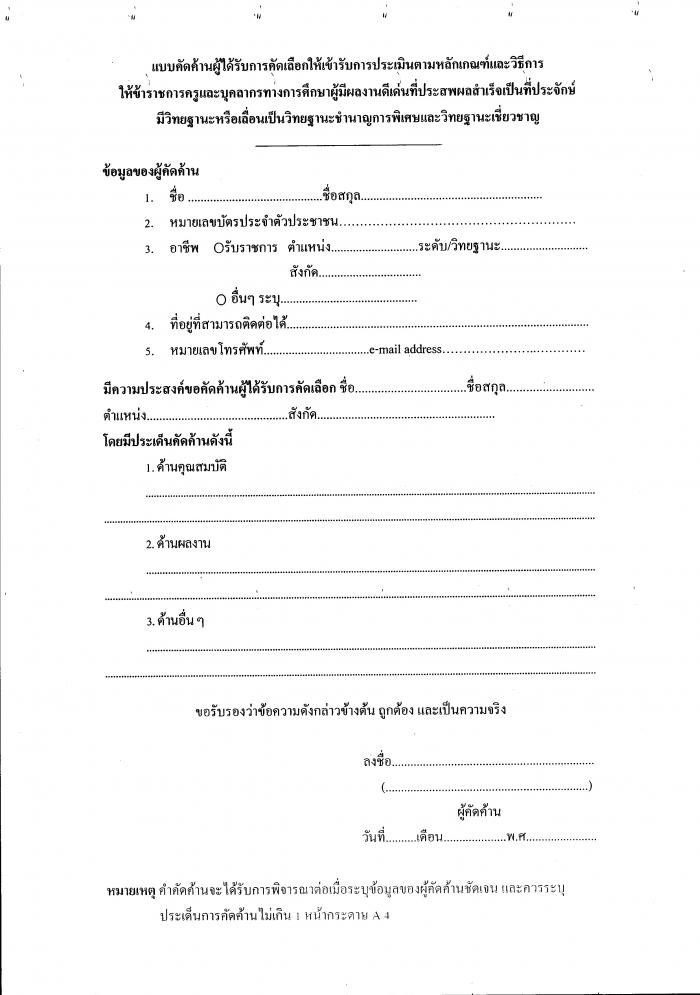 แบบคัดค้านผู้ได้รับการคัดเลือกให้เข้ารับการประเมินตามหลักเกณฑ์และวิธีการ
ให้ข้าราชการครูและบุคลากรทางการศึกษาผู้มีผลงานดีเด่นที่ประสพผลสำเร็จเป็นที่ประจักษ์
มีวิทยฐานะหรือเลื่อนเป็นวิทยฐานะชำนาญการพิเศษและวิทยฐานะเชี่ยวชาญ
ข้อมูลของผู้คัดค้าน
1. ชื่อ ............................................ชื่อสกุล............................................................
2. หมายเลขบัตรประจำตัวประชาชน……………………………………………………
3. อาชีพ O รับราชการ ตำแหน่ง............................ระดับ/วิทยฐานะ............................
สังกัด.................................
O อื่นๆ ระบุ............................................
4. ที่อยู่ที่สามารถติดต่อได้..................................................................................................
5. หมายเลขโทรศัพท์..................................e-mail address………………………………
มีความประสงค์ขอคัดค้านผู้ได้รับการคัดเลือก ชื่อ....................................ชื่อสกุล............................
ตำแหน่ง..............................................สังกัด..........................................................
โดยมีประเด็นคัดค้านดังนี้
1. ด้านคุณสมบัติ
................................................................................................................................
................................................................................................................................
2. ด้านผลงาน
................................................................................................................................
................................................................................................................................
3. ด้านอื่น ๆ
................................................................................................................................
................................................................................................................................
ขอรับรองว่าข้อความดังกล่าวข้างต้น ถูกต้อง และเป็นความจริง
ลงชื่อ..................................................................
(..................................................................)
ผู้คัดค้าน
วันที่..........เดือน....................พ.ศ.......................
หมายเหตุ คำคัดค้านจะได้รับการพิจารณาต่อเมื่อระบุข้อมูลของผู้คัดค้านชัดเจน และควรระบุ
ประเด็นการคัดค้านไม่เกิน 1 หน้ากระดาษ A 4